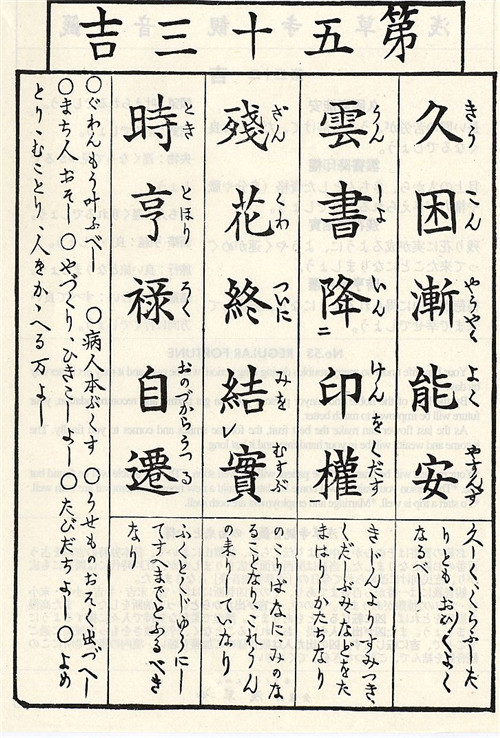 第五十三吉
久困漸能安
きうこんやうやくよくやすんず
雲書降二印權
うんしよいんけんをくだす
殘花終結レ實
ざんくわついにみをむすぶ
時亨禄自遷
ときとほりろくおのづからうつる
りともおひ〱よく
なるべし
くだしふみなどをた
まはりしかたちなり
のこりばなにみのな
の来りしていなり
てすへまでとふるべき
なり
〇ぐわんもう叶ふべし 〇病人本ぶくす 〇うせものおそく出づべし
〇まち人おそし〇やづくりひきこしよし〇たびだちよし〇よめ
とり、むことり、人をかゝへる万よし